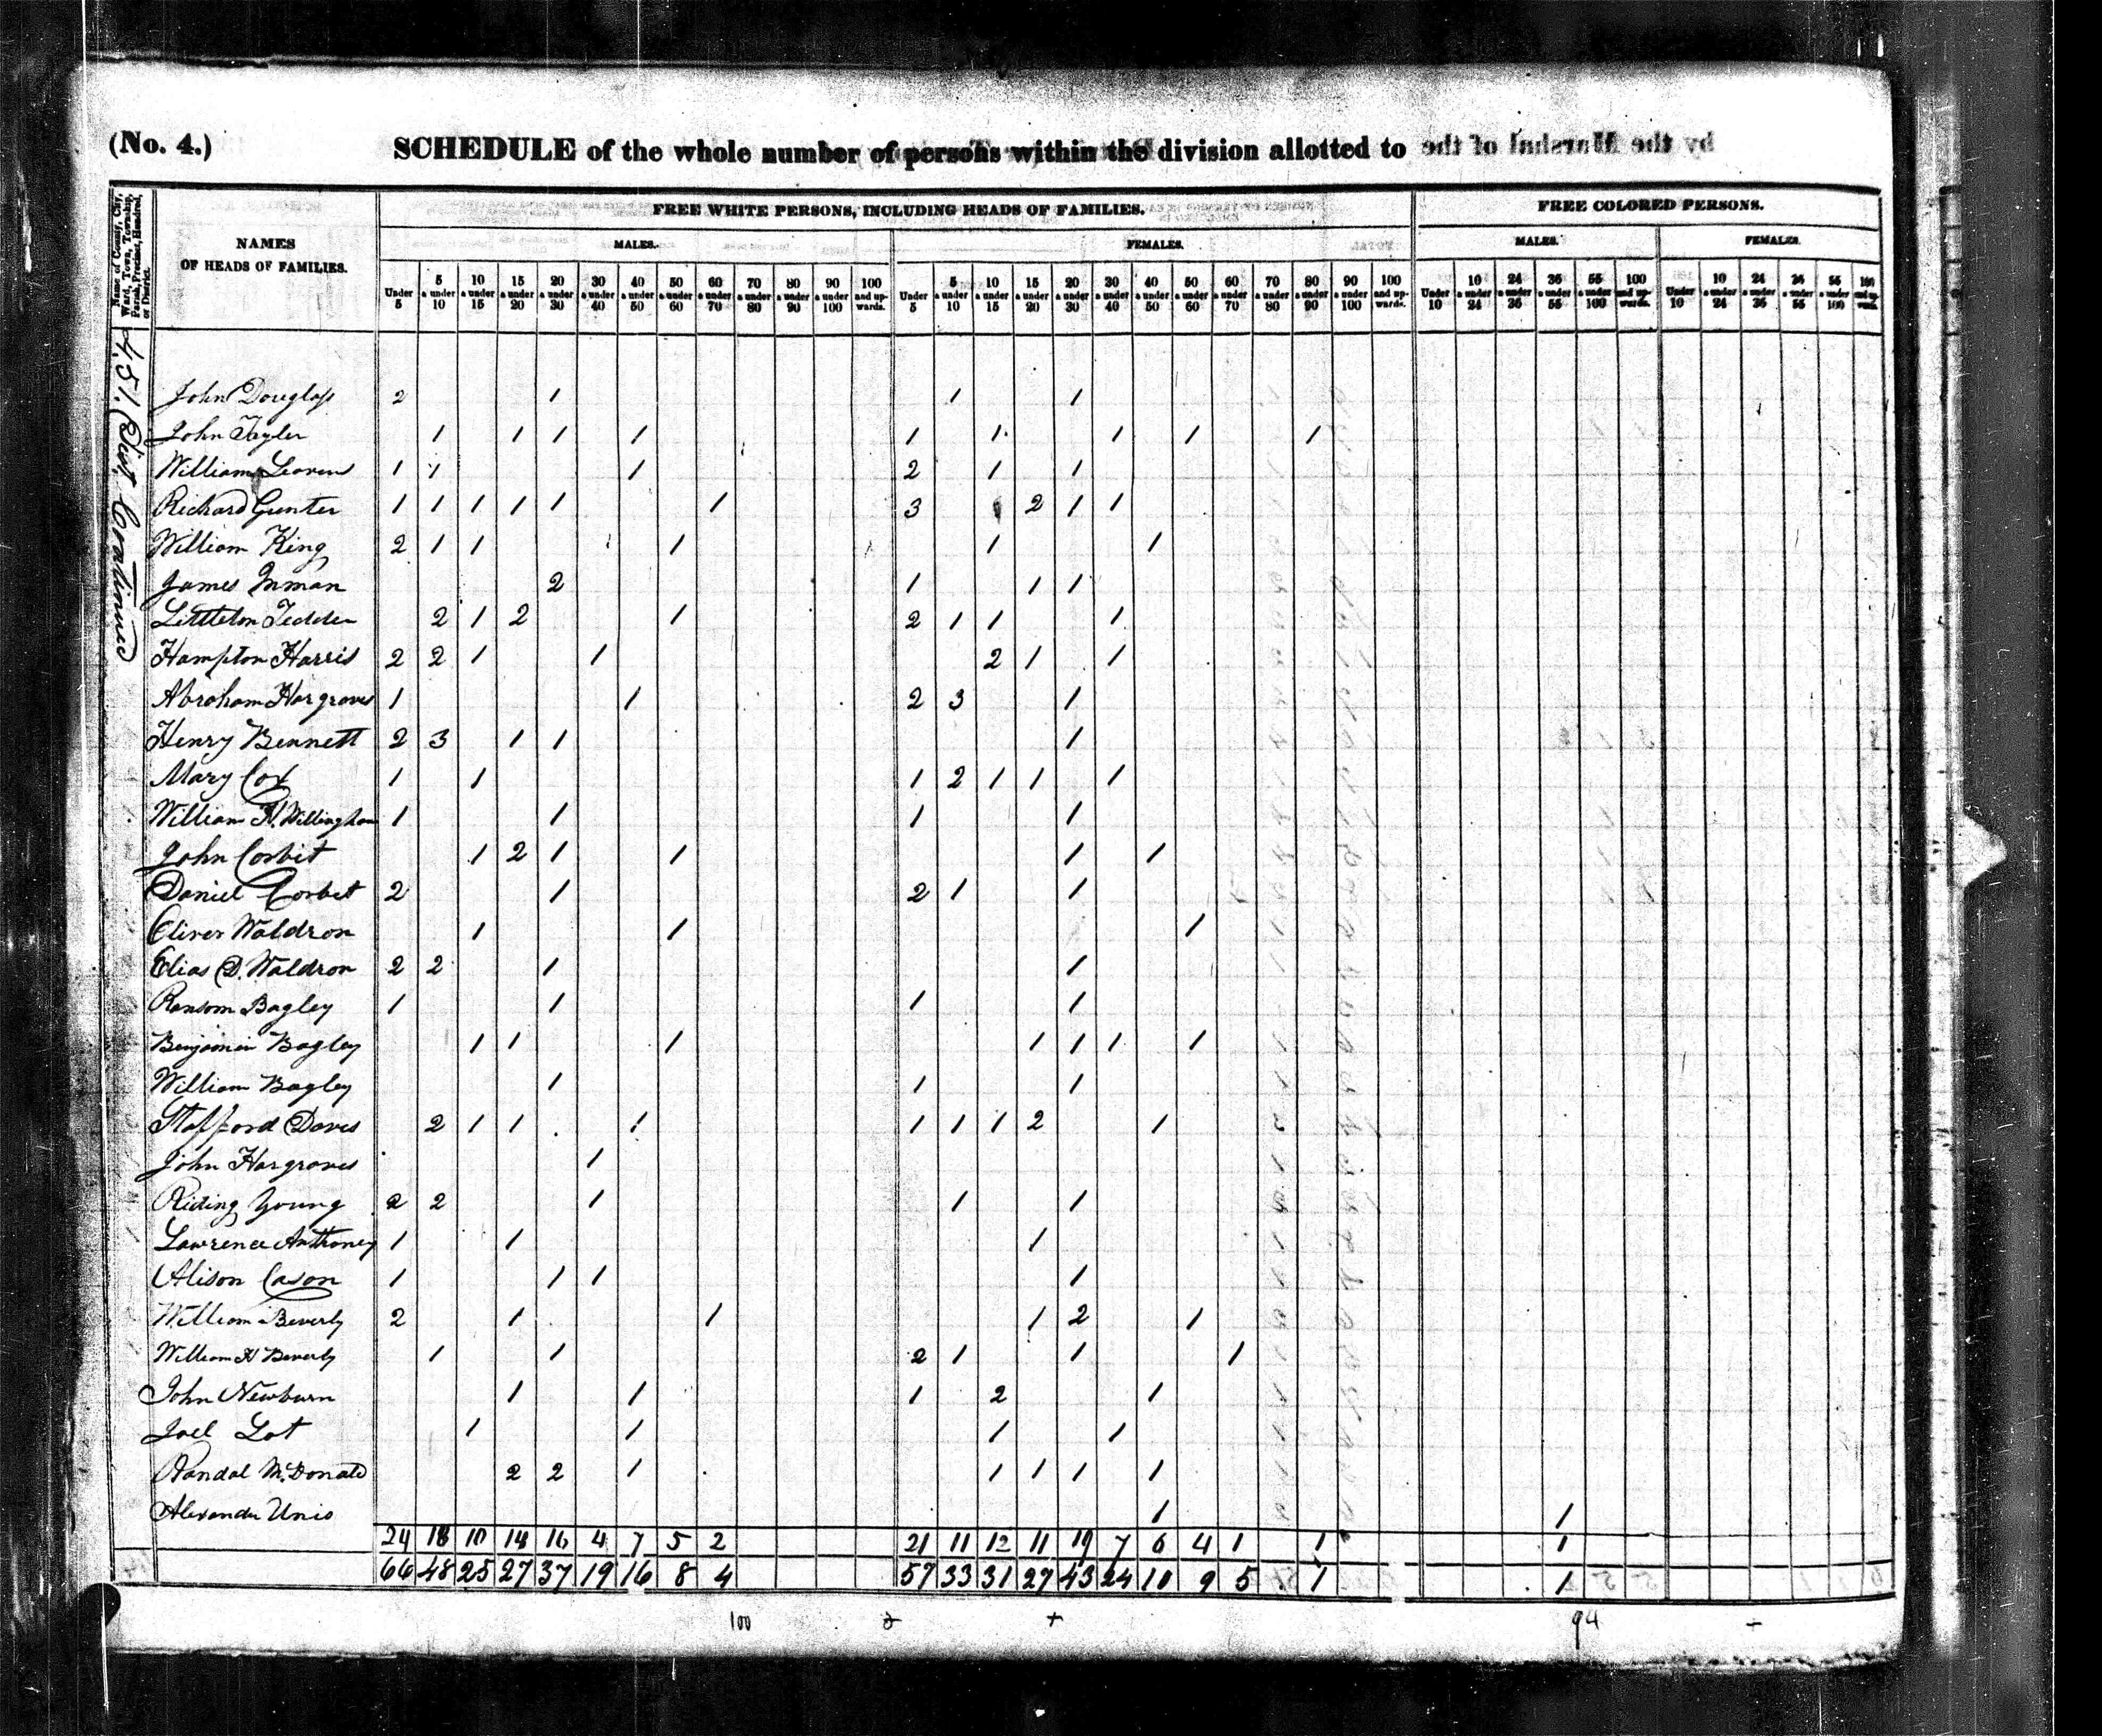 (No. 4.) SCHEDULE of the whole number of persons within the division allotted to by the Marshal of the
Name of County, City, Ward, Town, Township, Parish, Precinct, Hundred, or District.
NAMES OF HEADS OF FAMILIES.
FREE WHITE PERSONS, INCLUDING HEADS OF FAMILIES.
FREE COLORED PERSONS.
MALES. FEMALES. MALES. FEMALES.
Under 5 5 & under 10 10 & under 15 15 & under 20 20 & under 30 30 & under 40 40 & under 50 50 & under 60 60 & under 70 70 & under 80 80 & under 90 90 & under 100 100 and upwards. Under 5 5 & under 10 10 & under 15 15 & under 20 20 & under 30 30 & under 40 40 & under 50 50 & under 60 60 & under 70 70 & under 80 80 & under 90 90 & under 100 100 and upwards. Under 10 10 & under 24 24 & under 36 36 & under 55 55 & under 100 100 and upwards. Under 10 10 & under 24 24 & under 36 36 & under 55 55 & under 100 100 and upwards.
451. Dist. Continued
John Douglass 2 1 1 1
John Tayler 1 1 1 1 1 1 1 1 1
William 1 1 1 2 1 1
Richard Gunter 1 1 1 1 1 1 3 2 1 1
William King 2 1 1 1 1 1
James Inman 2 1 1 1
Littleton Tedder 2 1 2 1 2 1 1 1
Hampton Harris 2 2 1 1 2 1 1
Abraham Hargroves 1 1 2 3 1
Henry Bennett 2 3 1 1 1
Mary Cox 1 1 1 2 1 1 1
William H. Willingham 1 1 1 1
John Corbit 1 2 1 1 1 1
Daniel Corbet 2 1 2 1 1
Oliver Waldron 1 1 1
Elias D. Waldron 2 2 1 1
Ransom Bagley 1 1 1 1
Benjamin Bagley 1 1 1 1 1 1 1
William Bagley 1 1 1
Stafford Davis 2 1 1 1 1 1 1 2 1
John Hargroves 1
Riding Young 2 2 1 1 1
Lawrence Anthoney 1 1 1
Alison Cason 1 1 1 1
William Beverly 2 1 1 1 2 1
William H Beverly 1 1 2 1 1 1
John Newburn 1 1 1 2 1
Joel Lot 1 1 1 1
Randal McDonald 2 2 1 1 1 1 1
Alexander Unis 1 1
24 18 10 14 16 4 7 5 2 21 11 12 11 19 7 6 4 1 1 1
66 48 25 27 37 19 16 8 4 57 33 31 27 43 24 10 9 5 1 1
100 94